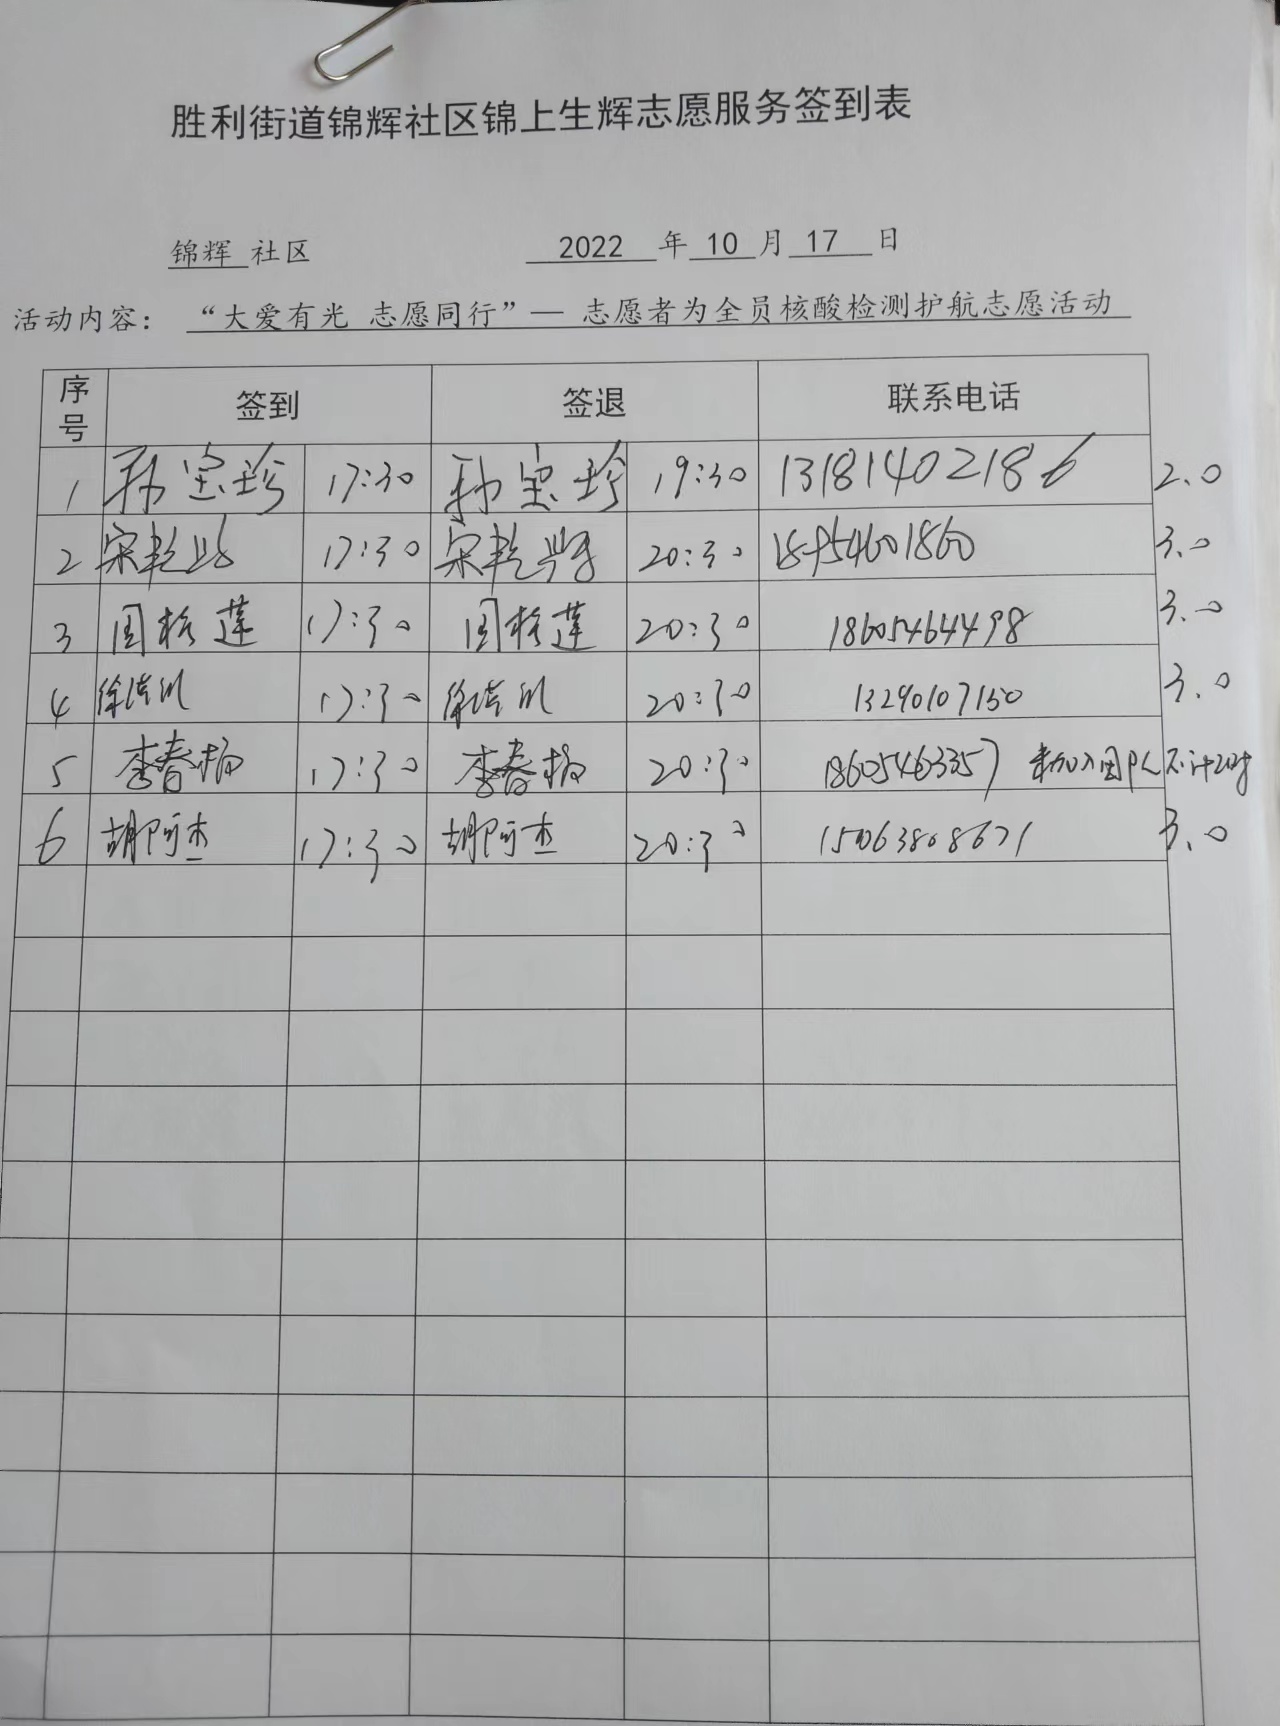 胜利街道锦辉社区锦上生辉志愿服务签到表
锦辉 社区 2022 年 10 月 17 日
活动内容： “大爱有光 志愿同行”— 志愿者为全员核酸检测护航志愿活动
序号 签到 签退 联系电话
1 孙宝珍 17:30 孙宝珍 19:30 13181402186 2.0
2 宋乾 17:30 宋乾 20:30 3.0
3 周桂莲 17:30 周桂莲 20:30 18605464498 3.0
4 徐洪 17:30 徐洪 20:30 13290107150 3.0
5 李春梅 17:30 李春梅 20:30 18605463357 未加入团队 不计时
6 胡阿杰 17:30 胡阿杰 20:30 15063808671 3.0